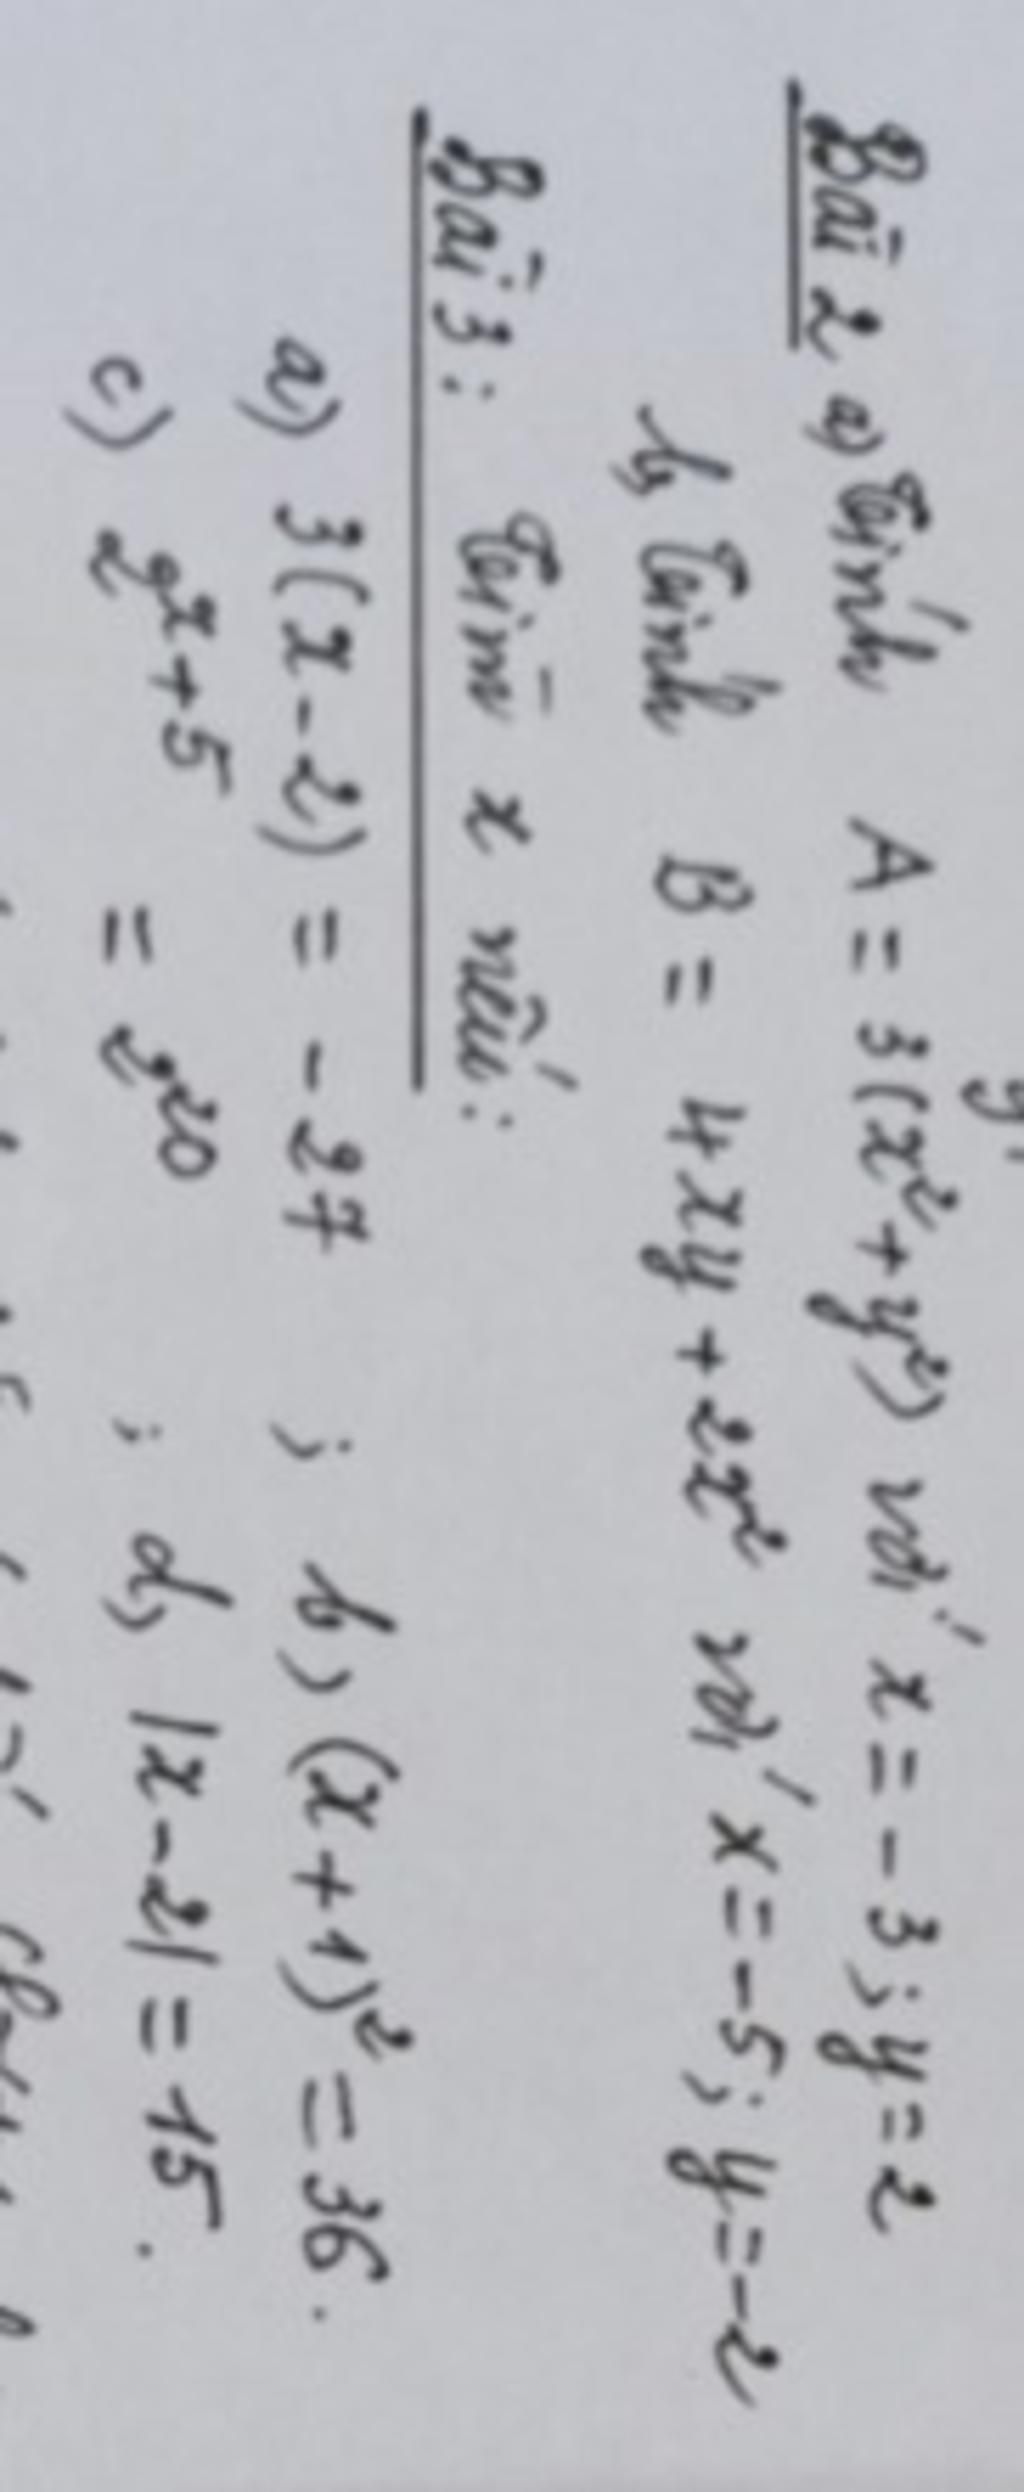 Bài 2 a) Tính A = 3(x² + y²) với x = -3; y = 2
b) Tính B = 4xy + 2x² với x = -5; y = -2
Bài 3: Tìm x nếu:
a) 3(x - 2) = - 27 ; b) (x + 1)² = 36.
c) 2ˣ⁺⁵ = 2²⁰ ; d) |x - 2| = 15.